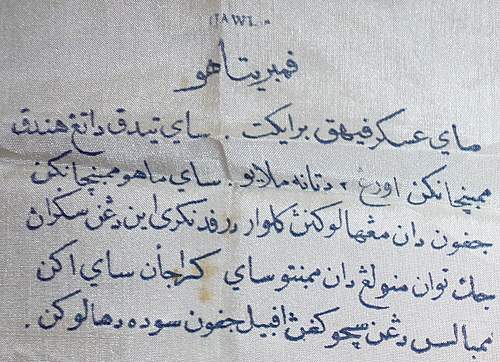 JAWI.
ڤمبريتاهو
ساي عسكر ڤيهق برايكت . ساي تيدق داتڠ هندق
ممبنچانكن اورڠ ٢ دتانه ملايو . ساي ماهو ممبنچانكن
جڤون دان مڠهالوكنڽ كلوار درڤد نكري اين دڠن سكران
جك توان منولڠ دان ممبنتو ساي كراجأن ساي اكن
ممبالس دڠن سچوكڤڽ اڤبيل جڤون سوده دهالوكن .